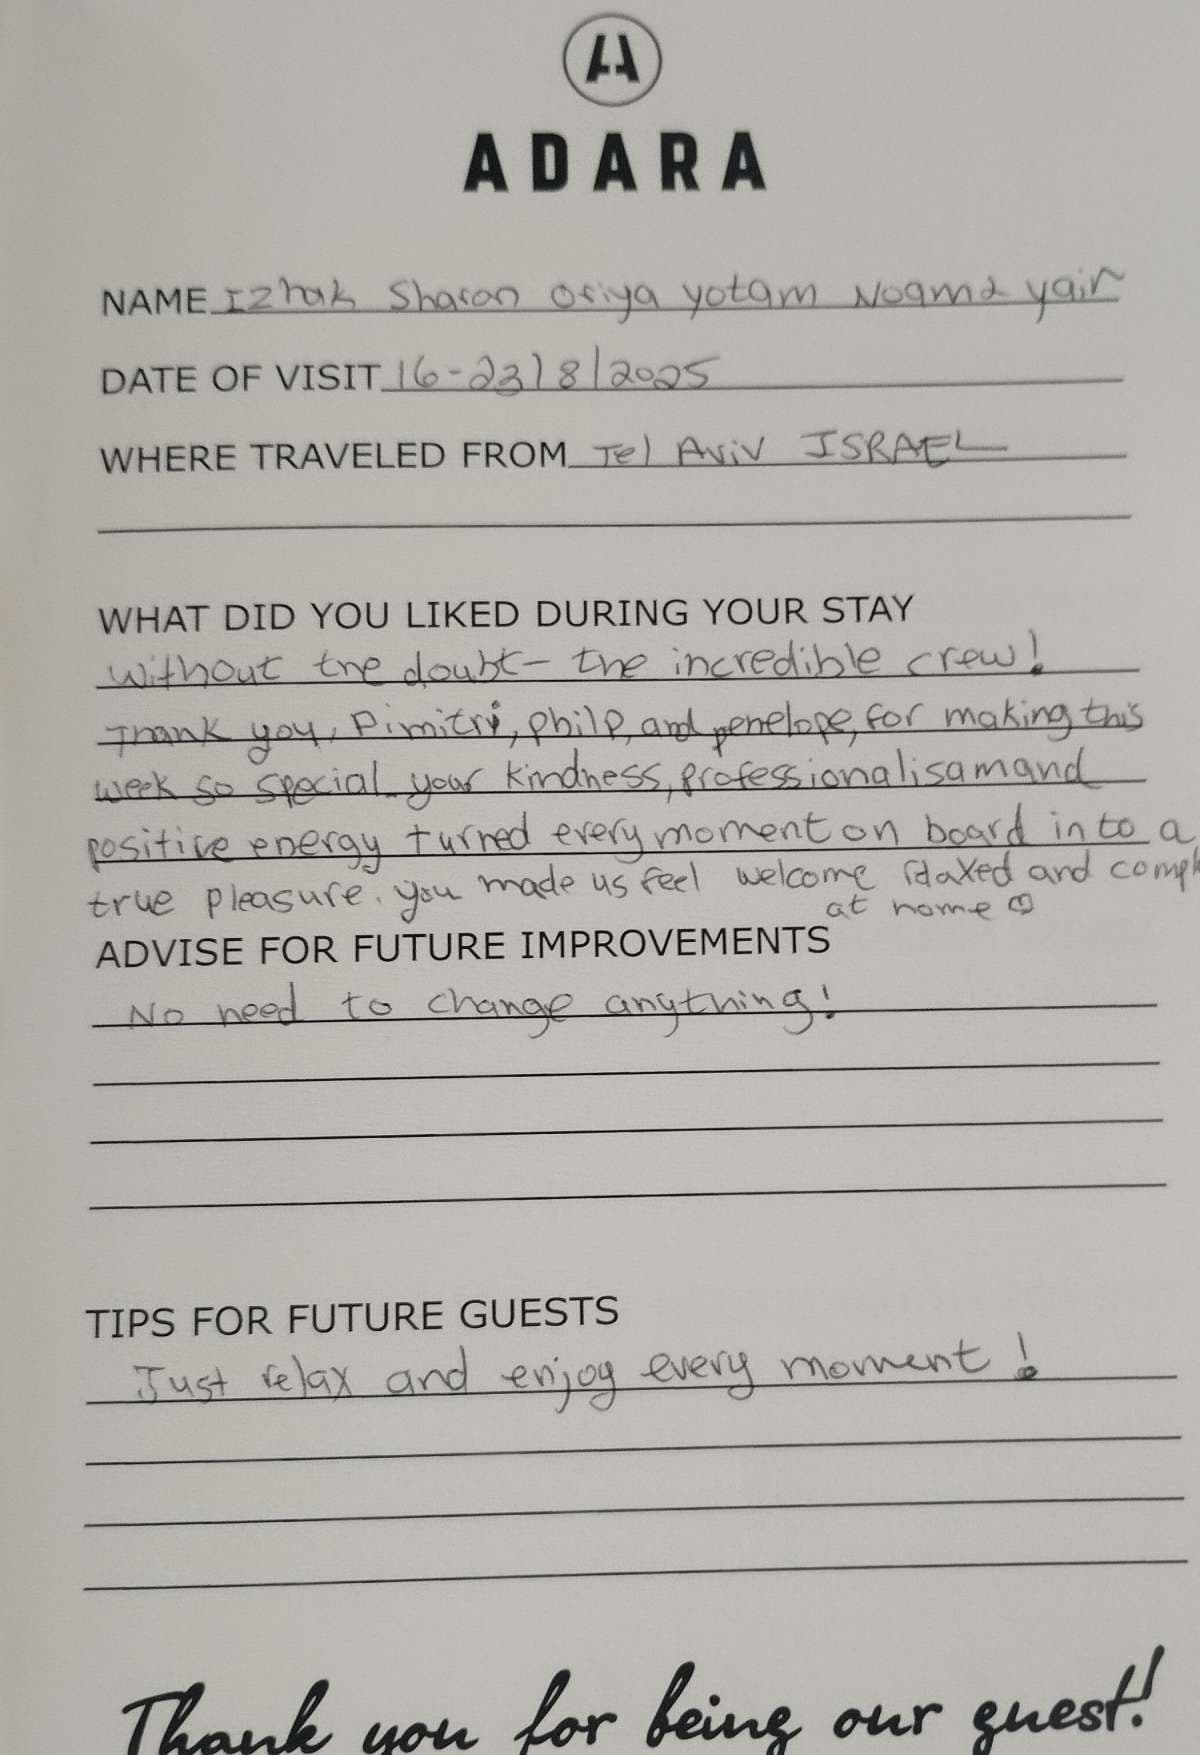 ADARA
NAME Izhak Sharon Oriya Yotam Noama yair
DATE OF VISIT 16-23/8/2025
WHERE TRAVELED FROM Tel Aviv ISRAEL
WHAT DID YOU LIKED DURING YOUR STAY
without the doubt- the incredible crew!
Thank you, Dimitri, philp, and penelope, for making this
week so special. your kindness, professionalisam and
positive energy turned every moment on board in to a
true pleasure. you made us feel welcome relaxed and compl
at home
ADVISE FOR FUTURE IMPROVEMENTS
No need to change anything!
TIPS FOR FUTURE GUESTS
Just relax and enjoy every moment!
Thank you for being our guest!